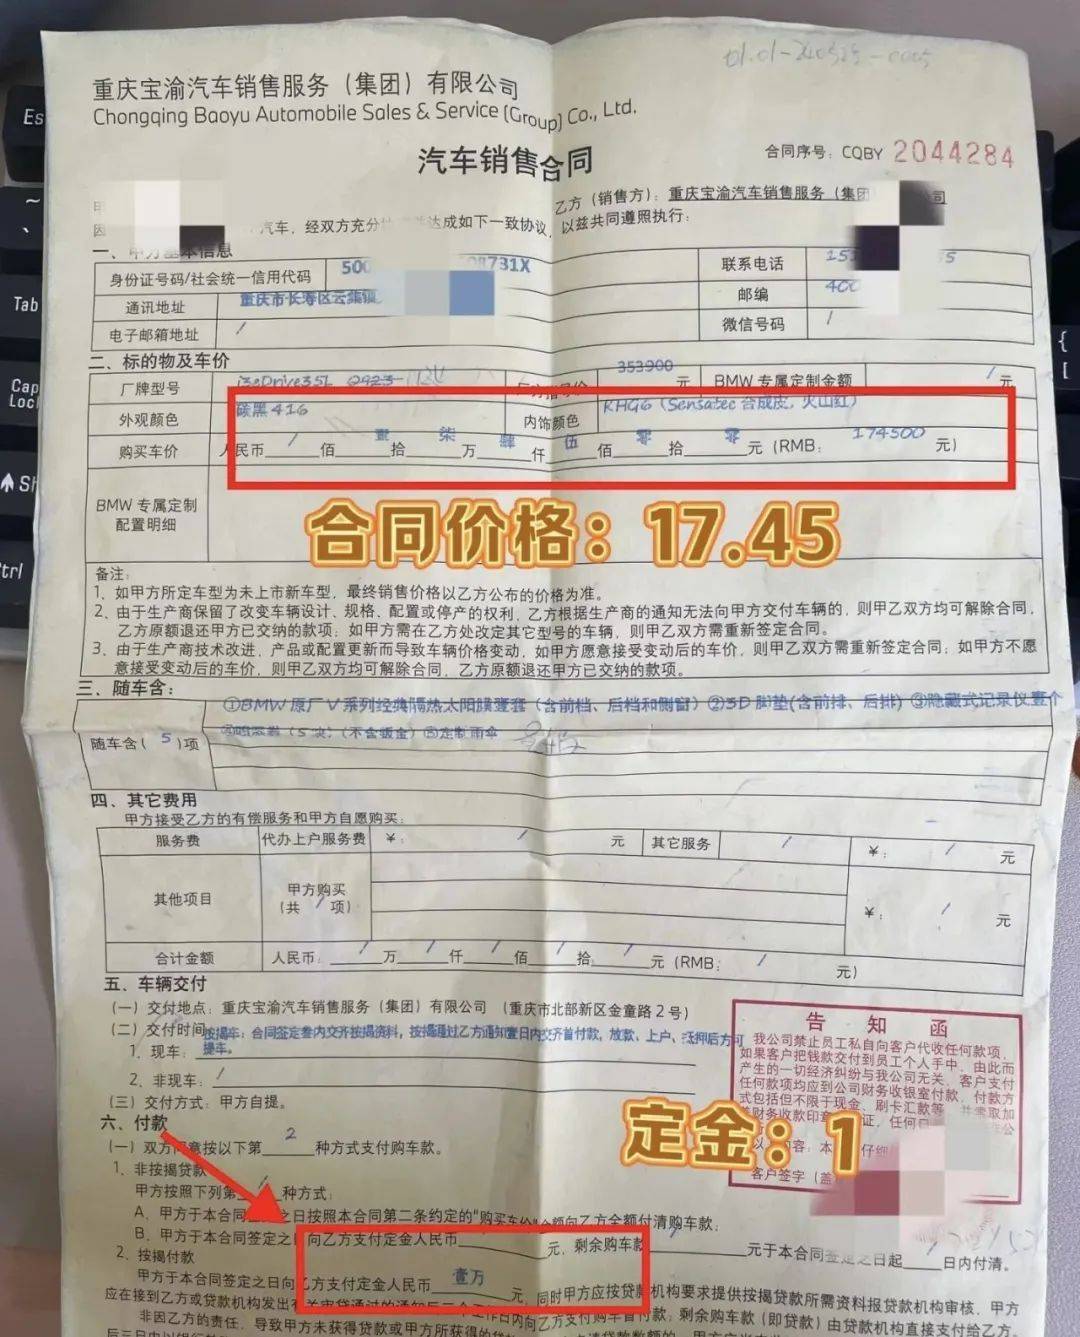 重庆宝渝汽车销售服务（集团）有限公司
Chongqing Baoyu Automobile Sales & Service (Group) Co., Ltd.
汽车销售合同
合同序号：CQBY 2044284
乙方（销售方）：重庆宝渝汽车销售服务（集团
汽车，经双方充分 达成如下一致协议，以兹共同遵照执行：
一、甲方基本信息
身份证号码/社会统一信用代码 500 8731X 联系电话
通讯地址 重庆市长寿区云集镇 邮编 400
电子邮箱地址 / 微信号码 /
二、标的物及车价
厂牌型号 i3eDrive35L 353900 元 BMW 专属定制金额 / 元
外观颜色 碳黑416 内饰颜色 KHG6（Sensatec 合成皮，火山红）
购买车价 人民币 / 佰 壹 拾 柒 万 肆 仟 伍 佰 零 拾 零 元（RMB：174500 元）
BMW 专属定制
配置明细
合同价格：17.45
备注：
1、如甲方所定车型为未上市新车型，最终销售价格以乙方公布的价格为准。
2、由于生产商保留了改变车辆设计、规格、配置或停产的权利，乙方根据生产商的通知无法向甲方交付车辆的，则甲乙双方均可解除合同，
乙方原额退还甲方已交纳的款项；如甲方需在乙方处改定其它型号的车辆，则甲乙双方需重新签定合同。
3、由于生产商技术改进，产品或配置更新而导致车辆价格变动，如甲方愿意接受变动后的车价，则甲乙双方需重新签定合同；如甲方不愿
意接受变动后的车价，则甲乙双方均可解除合同，乙方原额退还甲方已交纳的款项。
三、随车含：
随车含（ 5 ）项
①BMW原厂V系列经典隔热太阳膜壹套（含前档、后档和侧窗）②3D脚垫(含前排、后排) ③隐藏式记录仪壹个
（5次）（不含钣金）⑤定制雨伞
四、其它费用
甲方接受乙方的有偿服务和甲方自愿购买：
服务费 代办上户服务费 ￥： / 元 其它服务 / ￥： / 元
其他项目 甲方购买
（共 / 项） ￥： / 元
合计金额 人民币： / 万 / 仟 / 佰 / 拾 / 元（RMB： / 元）
五、车辆交付
（一）交付地点：重庆宝渝汽车销售服务（集团）有限公司 （重庆市北部新区金童路2号）
（二）交付时间 按揭车：合同签定叁内交齐按揭资料，按揭通过乙方通知壹日内交齐首付款，放款、上户、抵押后方可
提车。
1、现车：
2、非现车： /
（三）交付方式：甲方自提。
告知函
我公司禁止员工私自向客户代收任何款项，
如果客户把钱款交付到员工个人手中，由此而
产生的一切经济纠纷与我公司无关，客户支付
任何款项均应到公司财务收银室付款，付款方
式包括但不限于现金、刷卡汇款等，并需取加
财务收款印章 证，任何
客户签字（盖
定金：1
六、付款
（一）双方同意按以下第 2 种方式支付购车款。
1、非按揭贷款
甲方按照下列第 / 种方式：
A、甲方于本合同 之日按照本合同第二条约定的"购买车价"全额向乙方全额付清购车款；
B、甲方于本合同签定之日向乙方支付定金人民币 元，剩余购车款 元于本合同签定之日起 日内付清。
2、按揭付款
甲方于本合同签定之日向乙方支付定金人民币 壹万 元，同时甲方应按贷款机构要求提供按揭贷款所需资料报贷款机构审核，甲方
应在接到乙方或贷款机构发出 审贷通过的通知后三个工作日内向乙方支付购车首付款；剩余购车款（即贷款）由贷款机构直接支付给乙方
非因乙方的责任，导致甲方未获得贷款或甲方所获得的